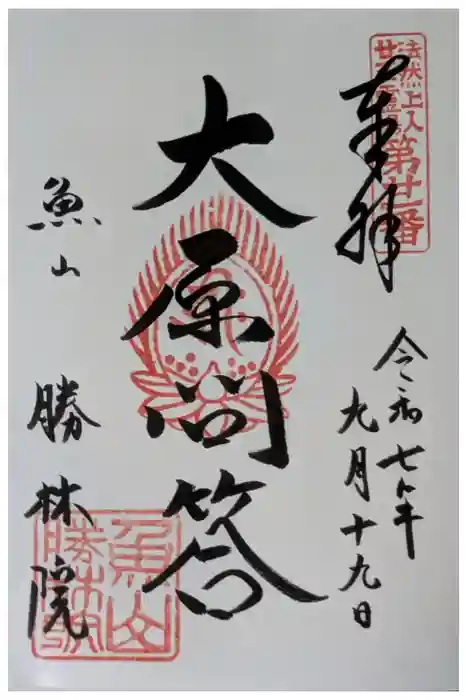 法然上人
廿五霊場
第廿一番
奉拝
令和七年
九月十九日
大原問答
魚山
勝林院
魚山
勝林院